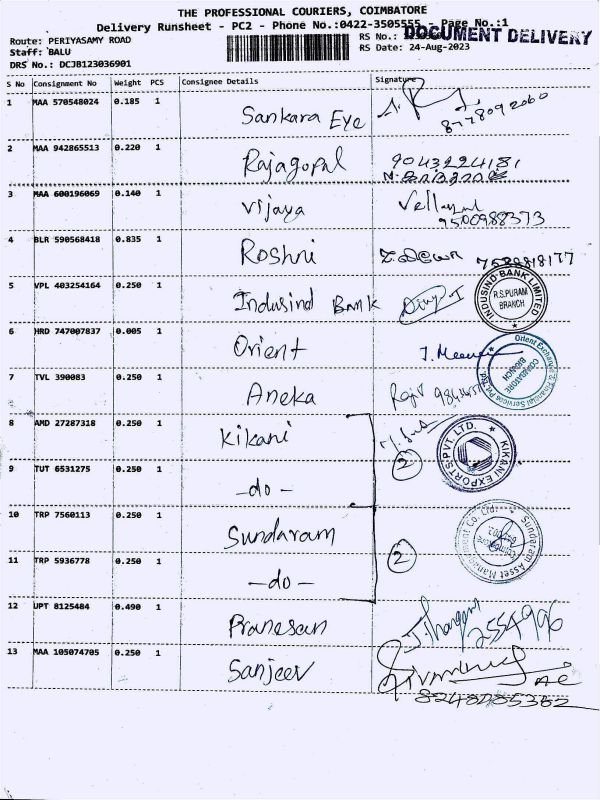 THE PROFESSIONAL COURIERS, COIMBATORE
Delivery Runsheet - PC2 - Phone No.:0422-3505555 - Page No.:1
Route: PERIYASAMY ROAD
Staff: BALU
DRS No.: DCJB123036901
RS No.:
DOCUMENT DELIVERY
RS Date: 24-Aug-2023
S No Consignment No Weight PCS Consignee Details Signature
1 MAA 570548024 0.185 1 Sankara Eye 8778092060
2 MAA 942865513 0.220 1 Rajagopal 9043224181
3 MAA 600196069 0.140 1 Vijaya 9500988373
4 BLR 590568418 0.835 1 Roshni 7538818177
5 VPL 403254164 0.250 1 Indusind Bank
INDUSIND BANK LIMITED
R.S.PURAM
BRANCH
6 HRD 747007837 0.005 1 Orient J. Meena
Orient Exchange & Financial Services Pvt. Ltd.
COIMBATORE
BRANCH
7 TVL 390083 0.250 1 Aneka
8 AMD 27287318 0.250 1 Kikani
KIKANI EXPORTS PVT. LTD.
2
9 TUT 6531275 0.250 1 -do-
10 TRP 7560113 0.250 1 Sundaram
Sundaram Asset Management Co. Ltd.
Coimbatore
2
11 TRP 5936778 0.250 1 -do-
12 UPT 8125484 0.490 1 Pranesan 2554996
13 MAA 105074705 0.250 1 Sanjeev
8248285362